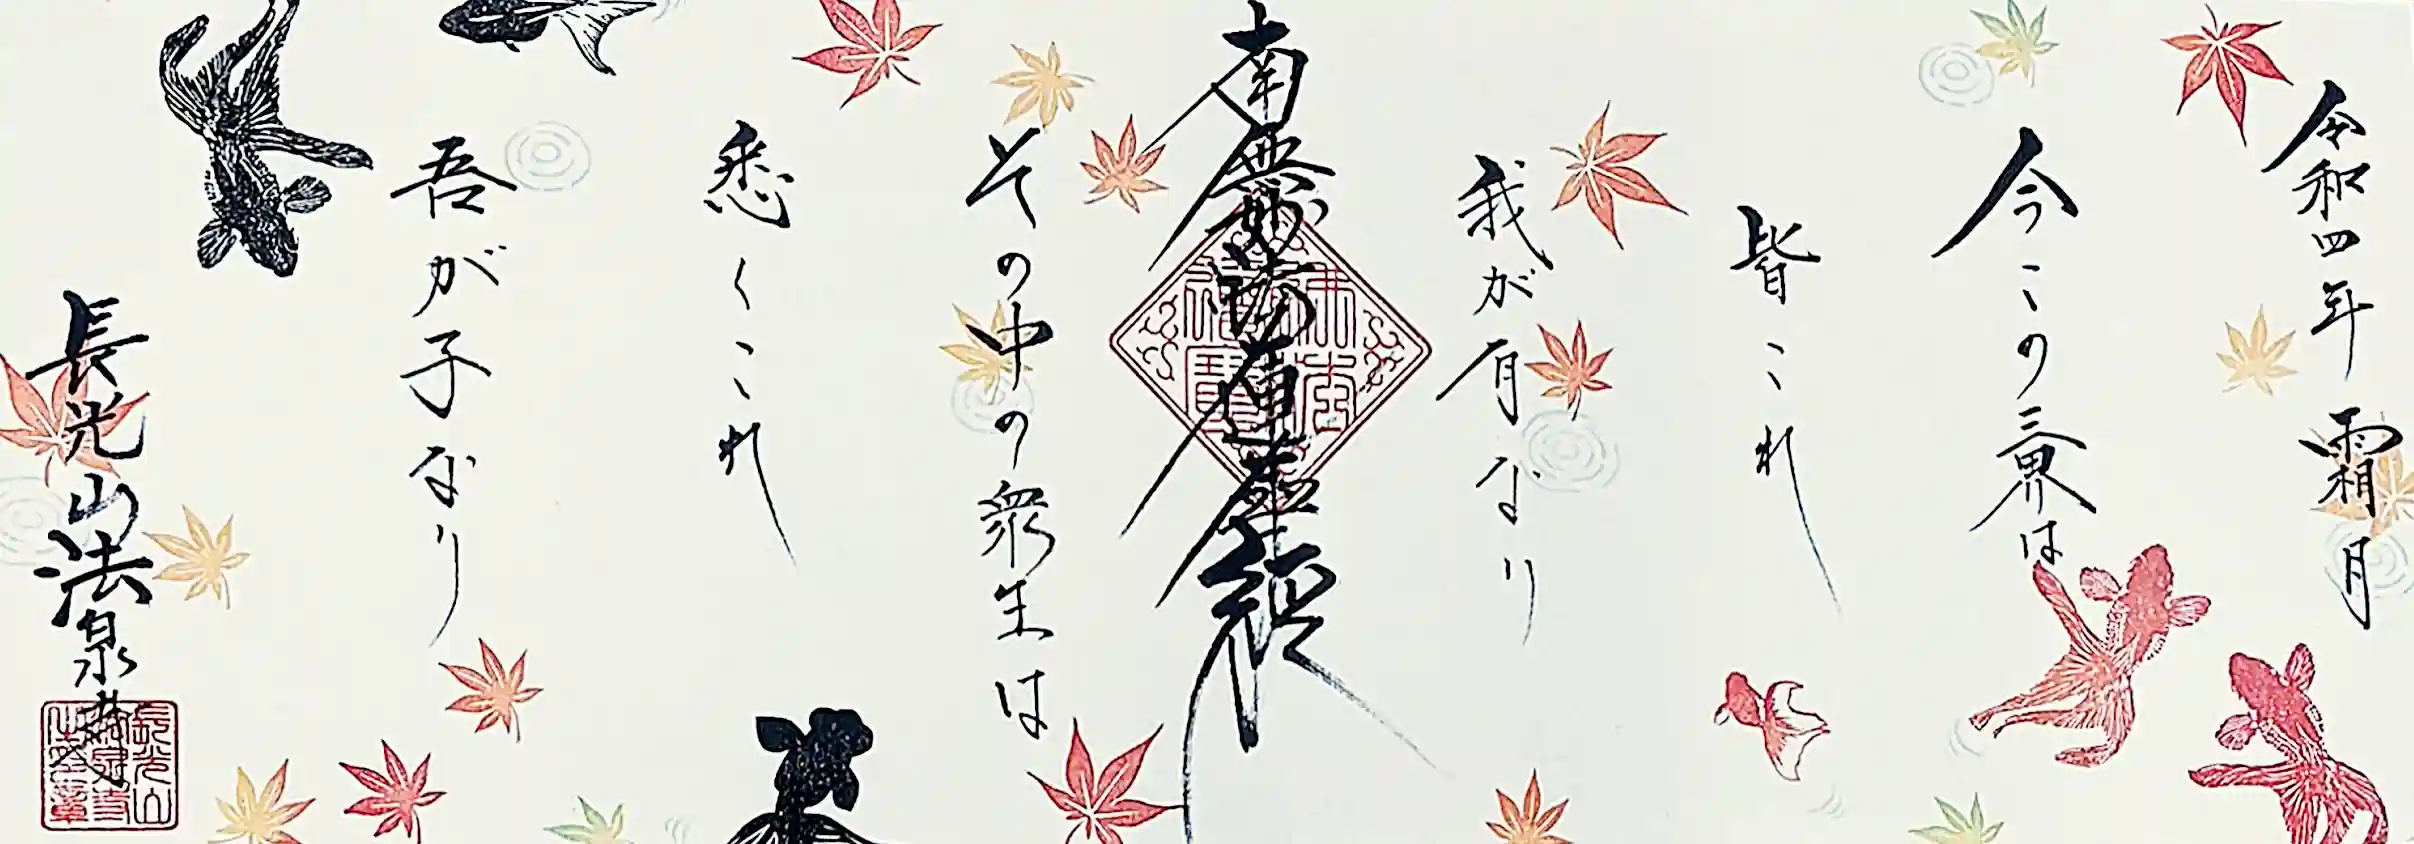 令和四年 霜月
今この三界は
皆これ
我が有なり
南無妙法蓮華経
その中の衆生は
悉くこれ
吾が子なり
長光山法泉寺